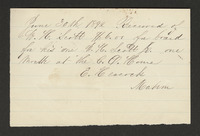 June 30th 1894 Received of
C. H. Scott $6.00 for board
for his son W. H. Scott Jr. one
Month at the C. O. Home
C. Hancock
Matron